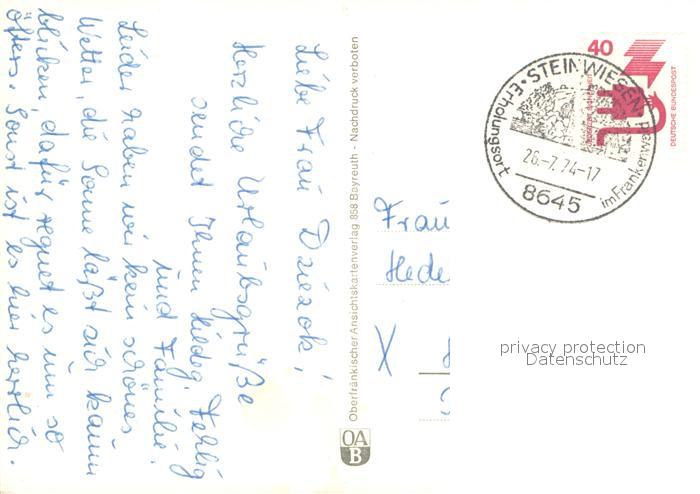 Liebe Frau Dziezok!
Herzliche Urlaubsgrüße
sendet Ihnen Hildeg. Fehlig
und Familie.
Leider haben wir kein schönes
Wetter, die Sonne läßt sich kaum
blicken, dafür regnet es um so
öfters. Sonst ist es hier herrlich.
Oberfränkischer Ansichtskartenverlag 858 Bayreuth - Nachdruck verboten
OA
B
Frau
Hede
X
40
DEUTSCHE BUNDESPOST
STEINWIESEN
Erholungsort
im Frankenwald
26.-7.74-17
8645
privacy protection
Datenschutz